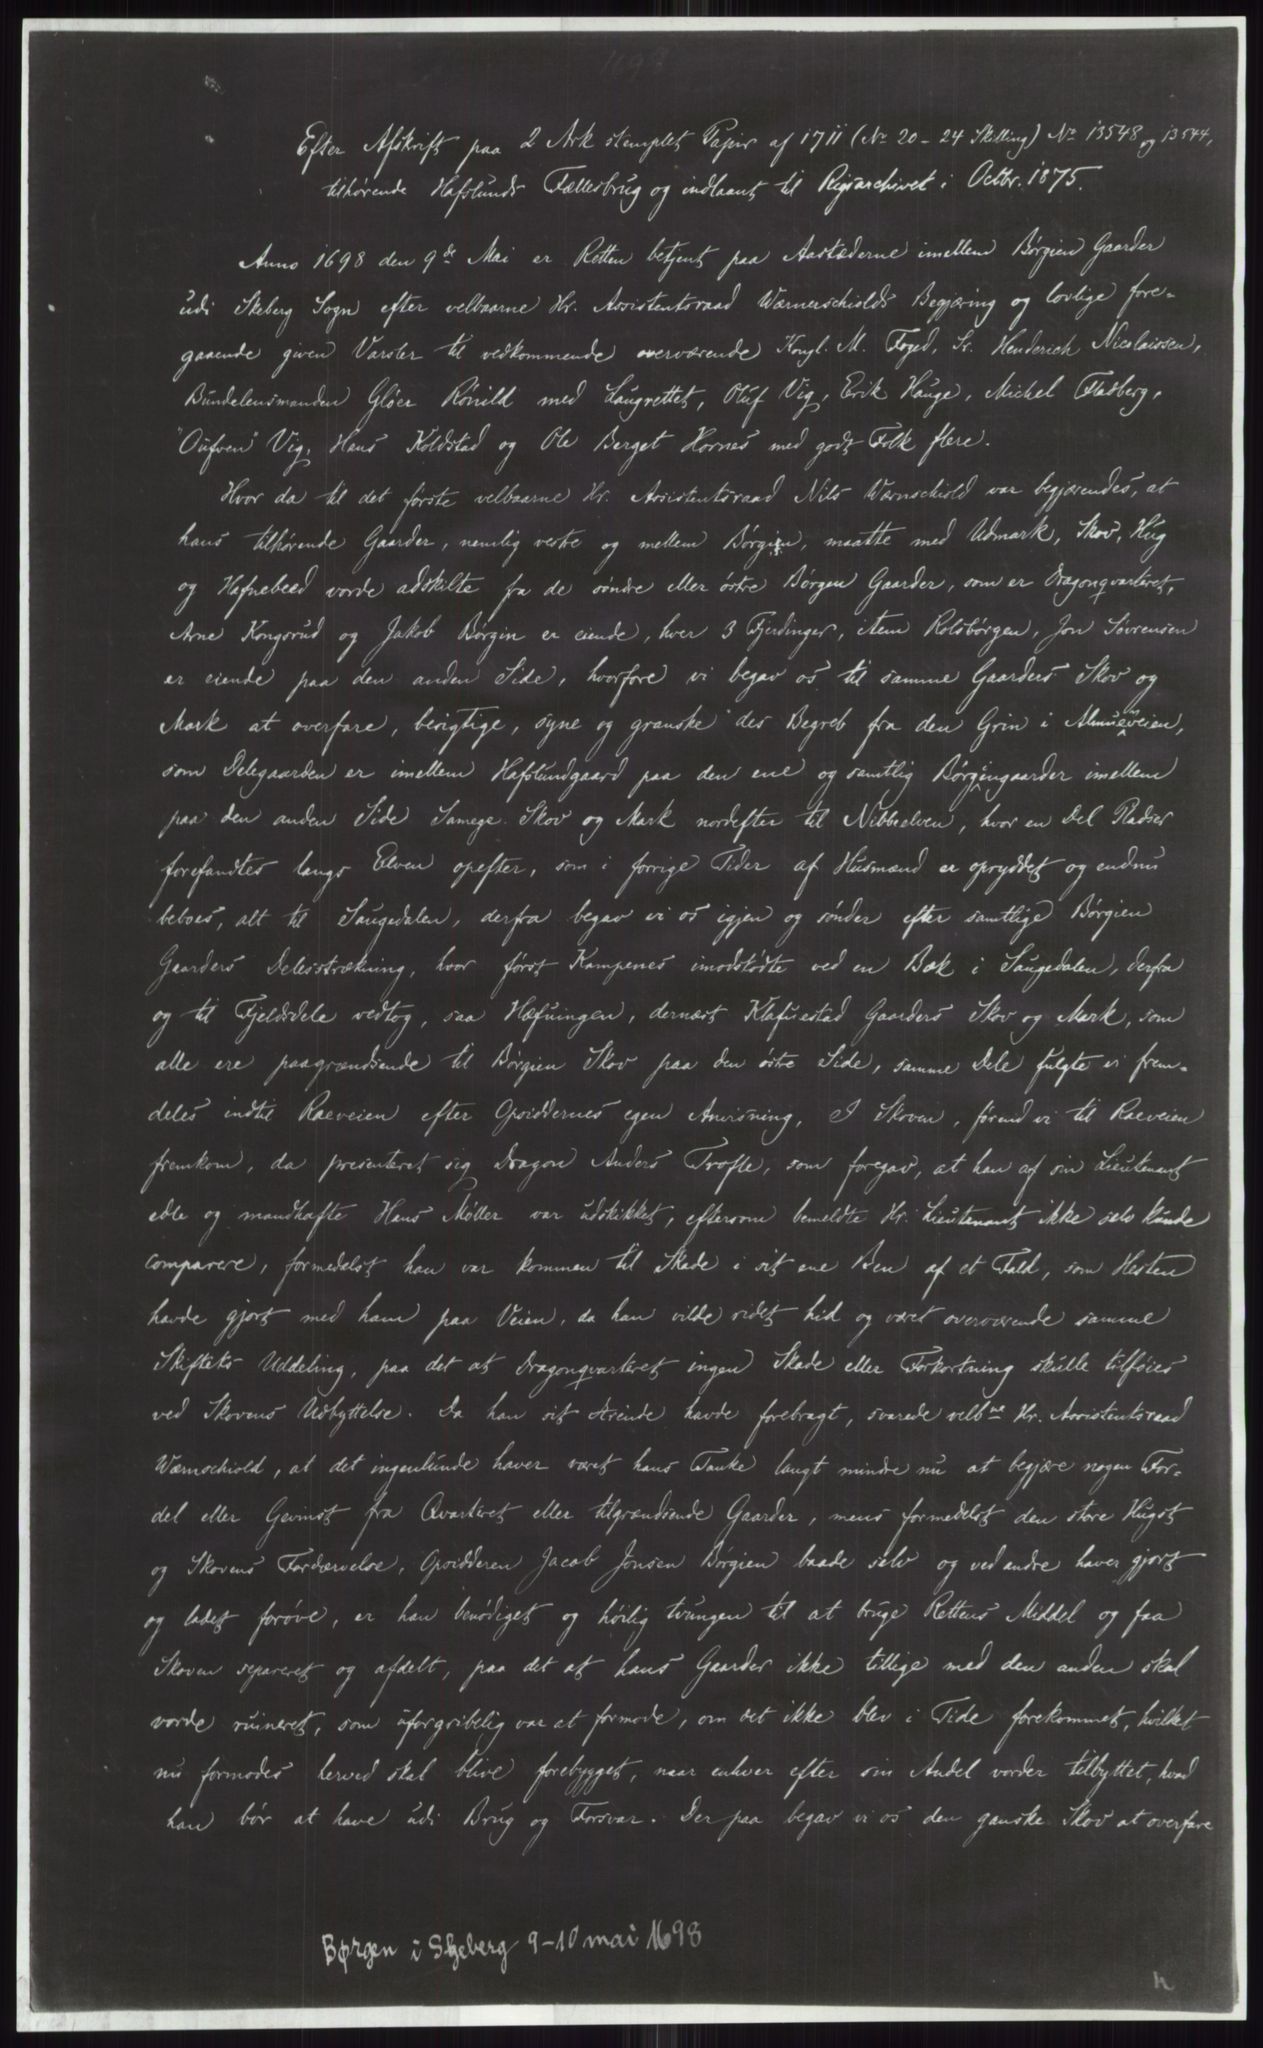 Efter Afskrift paa 2 Ark stemplet Papir af 1711 (No 20 – 24 Skilling) No 13548 og 13544,
tilhørende Hafslunds Fællesbrug og indlaant til Rigsarchivet i Octbr. 1875.
Anno 1698 den 9de Mai er Retten betjent paa Aastæderne imellem Børgien Gaarder
udi Skeberg Sogn efter velbaarne Hr. Assistentsraad Wærnerschiolds Begjæring og lovlige fore-
gaaende given Varsler til vedkommende overværende Kongl. M. Foged, Sr. Henderich Nicolaissen,
Bundelensmanden Gløer Rønild med Laugrettet, Oluf Vig, Erik Hauge, Michel Fladberg,
"Oufven" Vig, Hans Koldstad og Ole Berget Hornes med godt Folk flere.
Hvor da til det første velbaarne Hr. Assistentsraad Nils Wærnschiold var begjærendes, at
hans tilhørende Gaarder, nemlig vestre og mellem Børgien, maatte med Udmark, Skov, Hug
og Hafnebeed vorde adskilte fra de søndre eller østre Børgen Gaarder, som er Dragonqvarteret,
Arne Kongsrud og Jakob Børgin er eiende, hver 3 Fjerdinger, item Rolsbørgen, Jon Søvrensen
er eiende paa den anden Side, hvorfore vi begav os til samme Gaarders Skov og
Mark at overfare, besigtige, syne og granske des Begreb fra den Grin i Almueveien,
som Delegaarden er imellem Hafslundgaard paa den ene og samtlig Børgingaarder imellem
paa den anden Side Samege Skov og Mark nordefter til Nibbeelven, hvor en Del Pladser
forefandtes langs Elven opefter, som i forrige Tider af Husmænd er opryddet og endnu
beboes, alt til Saugedalen, derfra begav vi os igjen og sønder efter samtlige Børgien
Gaarders Delesstrækning, hvor først Kampenes imodstødte ved en Bæk i Saugedalen, derfra
og til Fjeldsdele vedtog, saa Hæfningen, dernæst Klafuestad Gaarders Skov og Mark, som
alle ere paagrændsende til Børgien Skov paa den østre Side, samme Dele fulgte vi frem-
deles indtil Raeveien efter Opsiddernes egen Anvisning, I Skoven, førend vi til Raeveien
fremkom, da presenteret sig Dragon Anders Trofte, som foregav, at han af sin Lieutenant
edle og mandhafte Hans Møller var udskikket, eftersom bemeldte Hr. Lieutenant ikke selv kunde
comparere, formedelst han var kommen til Skade i sit ene Ben af et Fald, som Hesten
havde gjort med ham paa Veien, da han vilde ridet hid og været overværende samme
Skiftets Uddeling, paa det at Dragonqvarteret ingen Skade eller Forkortning skulle tilføies
ved Skovens Udbyttelse. Da han sit Ærinde havde forebragt, svarede velbne Hr. Assistentsraad
Wærnschiold, at det ingenlunde haver været hans Tanke langt mindre nu at begjære nogen For-
del eller Gevinst fra Qvarteret eller tilgrændsende Gaarder, mens formedelst den store Hugst
og Skovens Fordærvelse, Opsidderen Jacob Jonsen Børgien baade selv og ved andre haver gjort
og ladet forøve, er han benødiget og høilig tvungen til at bruge Rettens Middel og faa
Skoven separeret og afdelt, paa det at hans Gaarder ikke tillige med den anden skal
vorde ruineret, som uforgribelig var at formode, om det ikke blev i Tide forekommet, hvilket
nu formodes herved skal blive forebygget, naar enhver efter sin Andel vorder tilbyttet, hvad
han bør at have udi Brug og Forsvar. Der paa begav vi os den ganske Skov at overfare
Børgen i Skjeberg 9–10 mai 1698